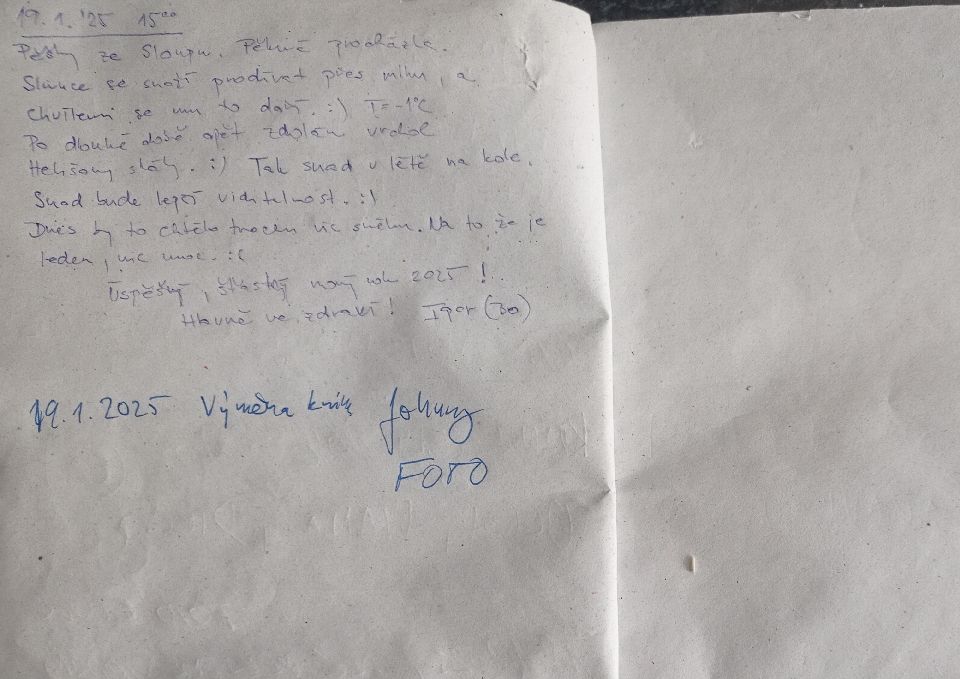 19.1.'25 15⁰⁰
Pěšky ze Sloupu. Pěkná procházka.
Slunce se snaží prodívat přes mlhu, a
chvílemi se mu to daří. :) T=-1°C
Po dlouhé době opět zdolán vrchol
Helišovy skály. :) Tak snad v létě na kole.
Snad bude lepší viditelnost. :)
Dnes by to chtělo trochu víc sněhu. Na to že je
leden, nic moc. :(
Úspěšný, šťastný nový rok 2025!
Hlavně ve zdraví! Igor
19.1.2025 Výměna knihy Johnny
FOTO